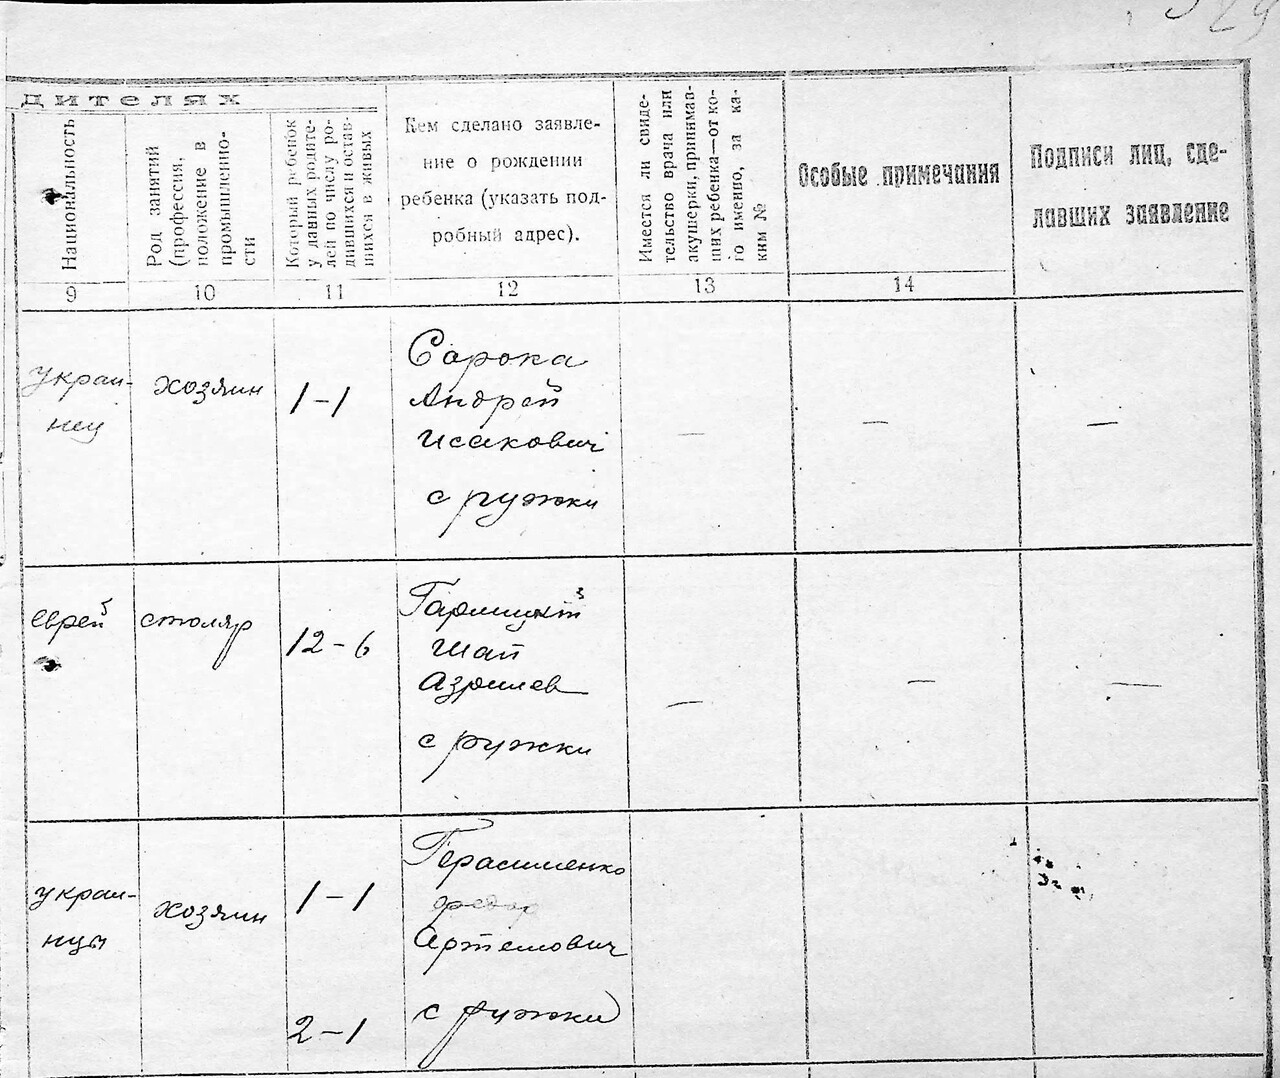 329
дителях
Национальность
Род занятий
(профессия,
положение в
промышленно-
сти
Который ребенок
у данных родите-
лей по числу ро-
дившихся и остав-
шихся в живых
Кем сделано заявле-
ние о рождении
ребенка (указать под-
робный адрес).
Имеется ли свиде-
тельство врача или
акушерки, принимав-
ших ребенка—от ко-
го именно, за ка-
ким №
Особые примечания
Подписи лиц, сде-
лавших заявление
9 10 11 12 13 14
украи-
нец
хозяин
1-1
Сорока
Андрей
Исакович
с ружки
—
—
—
еврей
столяр
12-6
Шап
Азрилев
с ружки
—
—
—
украи-
нцы
хозяин
1-1
2-1
Герасименко
федор
Артемович
с ружки